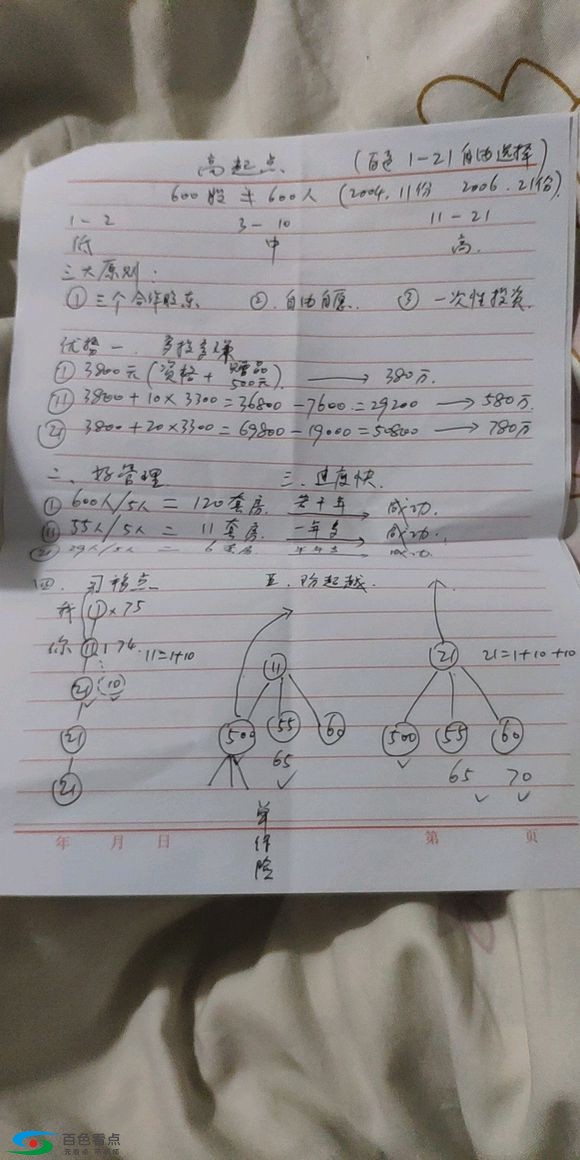 高起点 (百色 1-21 自由选择)
600股 ≠ 600人 (2004.11份 2006.21份)
1-2 3-10 11-21
低 中 高.
三大原则.
① 三个合作股东 ②. 自由自愿. ③ 一次性投资
优势 一. 多投多赚
① 3800元(资格+赠品500元). → 380万.
⑪ 3800+10×3300=36800-7600=29200 → 580万.
㉑ 3800+20×3300=69800-19000=50800 → 780万
二、好管理 三.速度快.
① 600人/5人 = 120套房. 若干年 → 成功.
⑪ 55人/5人 = 11套房. 一年多 → 成功.
㉑ 29人/5人 = 6套房. 成功.
四. 五. 防超越.
我 ① ×75
你 ⑪ 74. 11=1+10
㉑ (10)
㉑
㉑
⑪
500 55 60
65
㉑ 21=1+10+10
500 55 60
65 70
单
险
年 月 日 第 页
百色看点